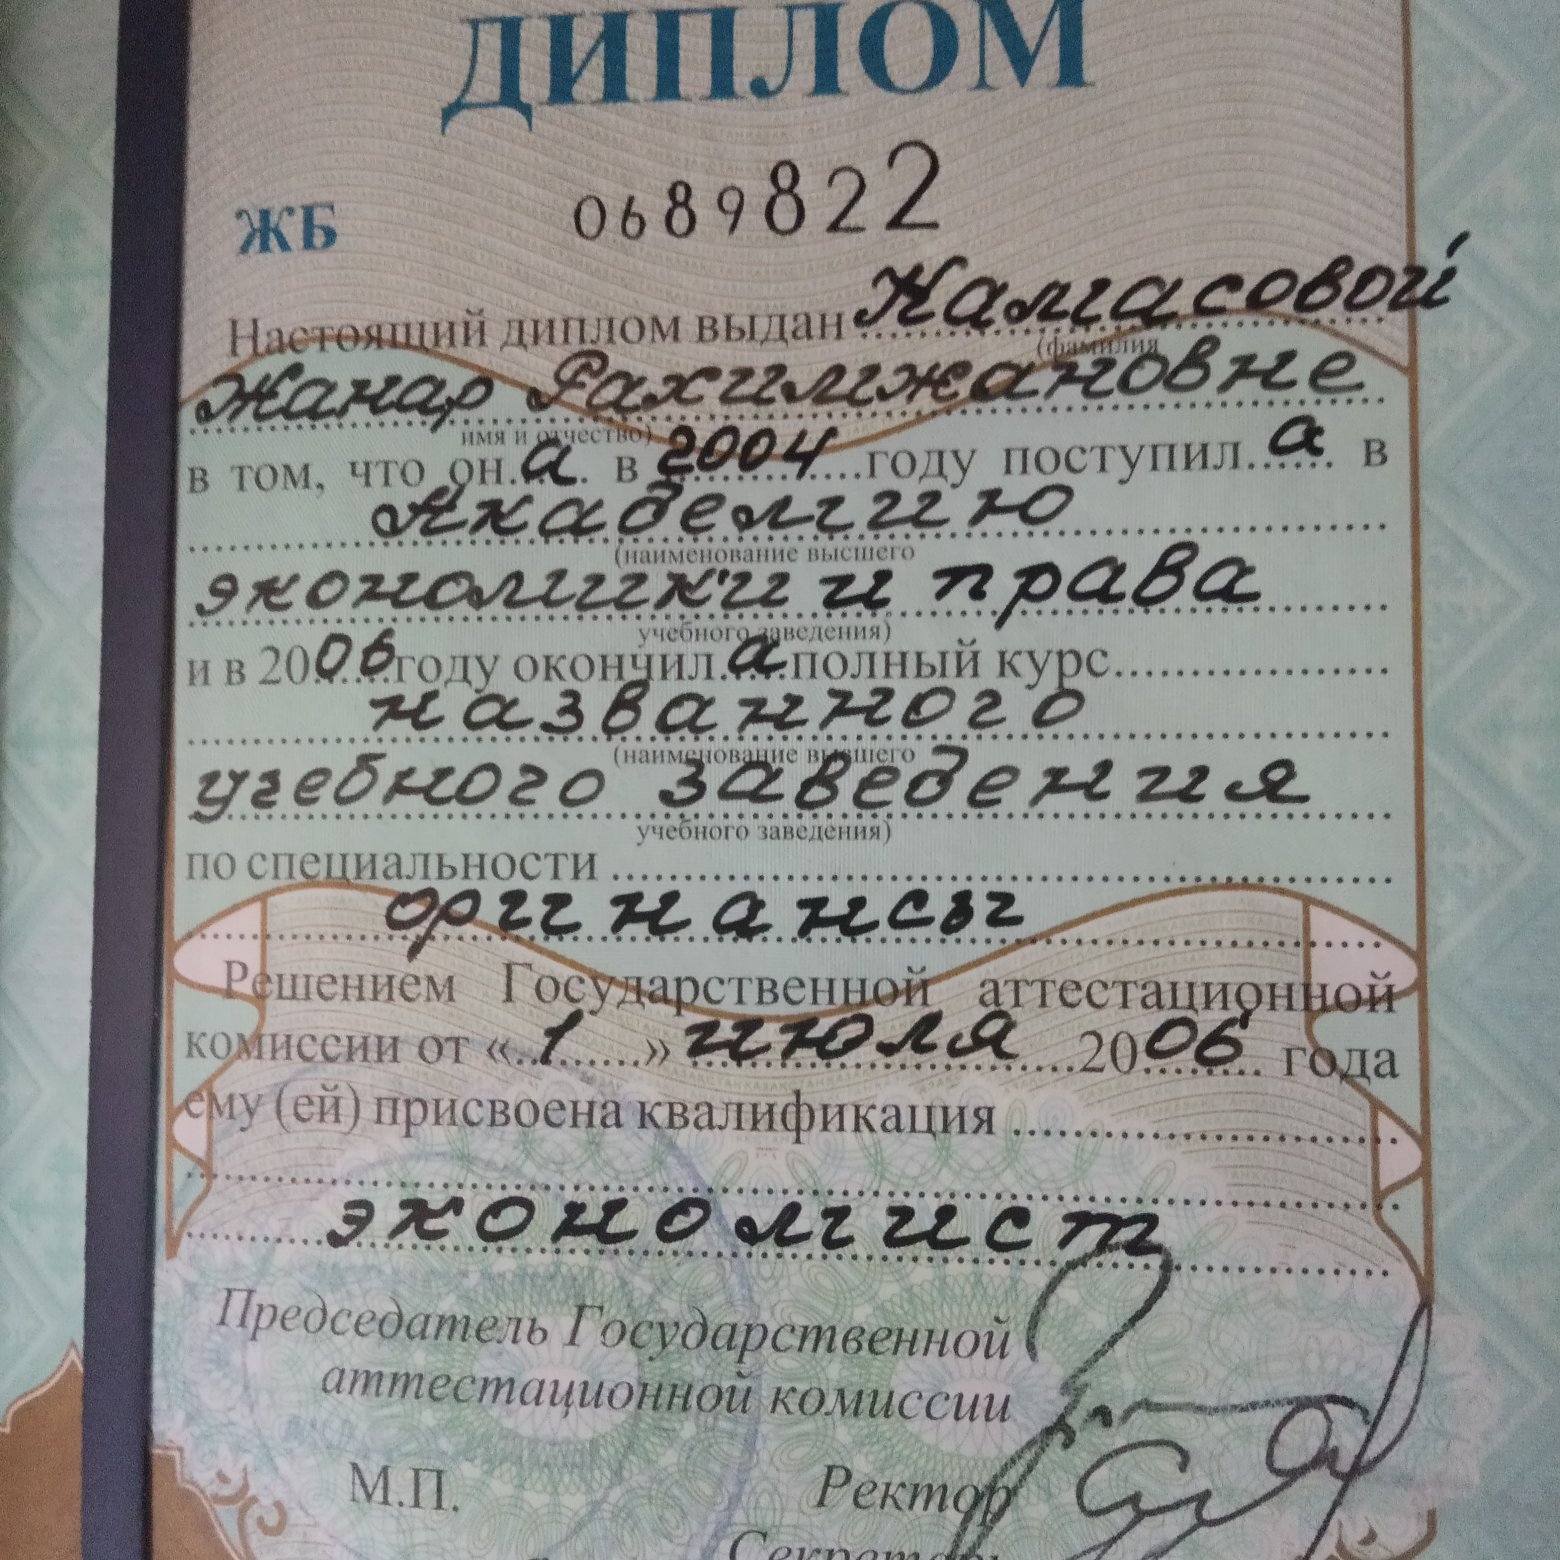 ДИПЛОМ
ЖБ 0689822
Настоящий диплом выдан Камасовой
(фамилия
Жанар Рахимжановне
имя и отчество)
в том, что он а в 2004 году поступил а в
Академию
(наименование высшего
экономики и права
учебного заведения)
и в 2006 году окончил а полный курс
названного
(наименование высшего
учебного заведения
учебного заведения)
по специальности
финансы
Решением Государственной аттестационной
комиссии от «1» июля 2006 года
ему (ей) присвоена квалификация
экономист
Председатель Государственной
аттестационной комиссии
М.П. Ректор
Секретарь